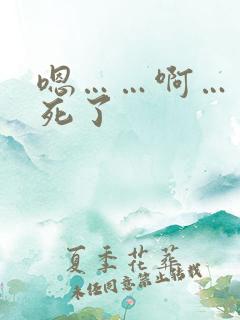 嗯……啊…
死了
夏季花葬
未经同意禁止转载